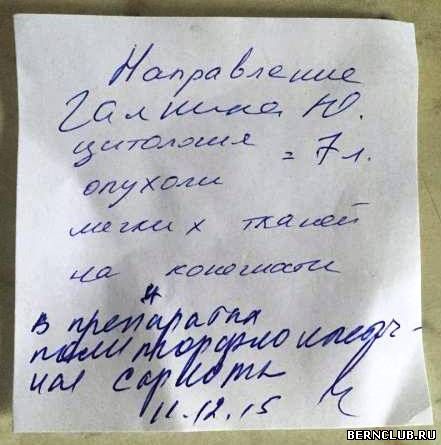 Направление
Галкина Ю.
цитология = 7 л.
опухоли
мягких тканей
на конечности
В препаратах
полиморфноклеточ-
ная саркома
11.12.15
BERNCLUB.RU